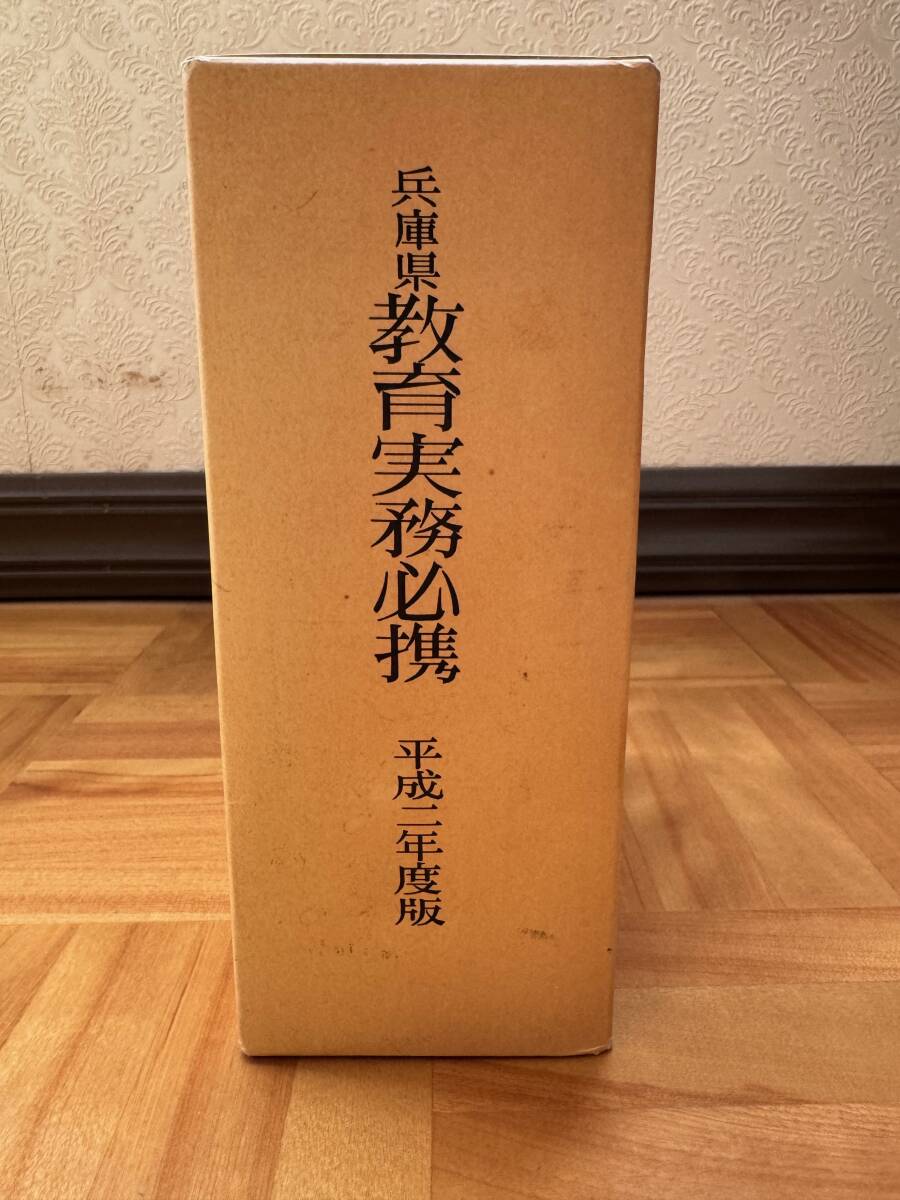 兵庫県教育実務必携 平成二年度版